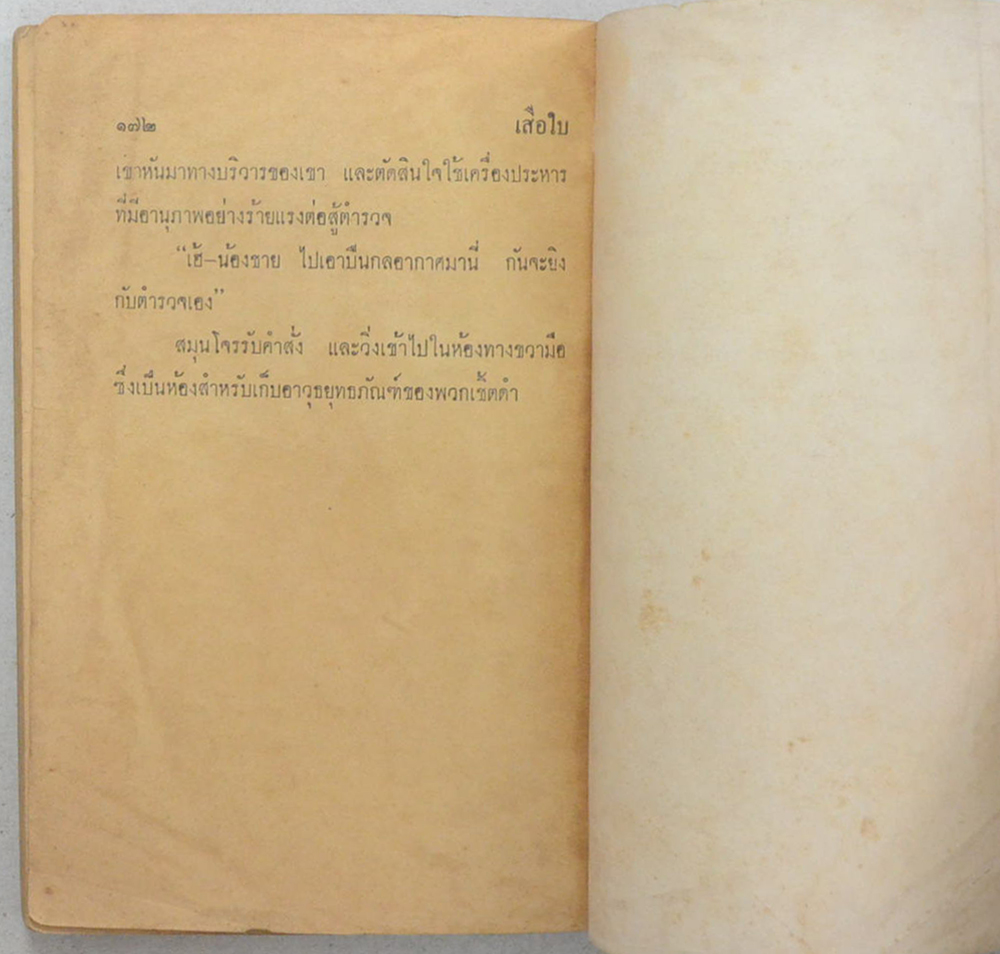 ๑๗๒ เสือใบ
เขาหันมาทางบริวารของเขา และตัดสินใจใช้เครื่องประหาร
ที่มีอานุภาพอย่างร้ายแรงต่อสู้ตำรวจ
“เฮ้–น้องชาย ไปเอาปืนกลอากาศมานี่ กันจะยิง
กับตำรวจเอง”
สมุนโจรรับคำสั่ง และวิ่งเข้าไปในห้องทางขวามือ
ซึ่งเป็นห้องสำหรับเก็บอาวุธยุทธภัณฑ์ของพวกเชิ้ตดำ